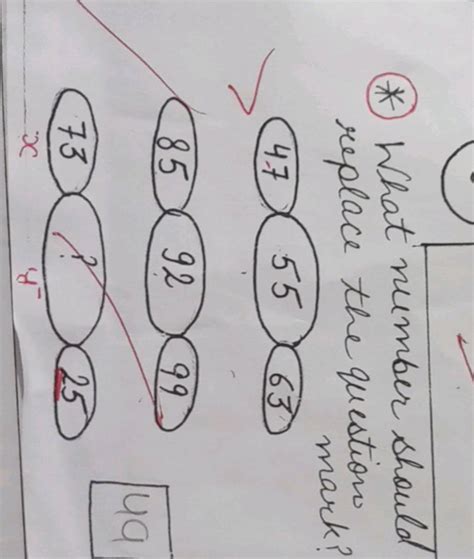 * What number should
replace the question
mark?
47 55 63
85 92 99
73 ? 25
x y
49